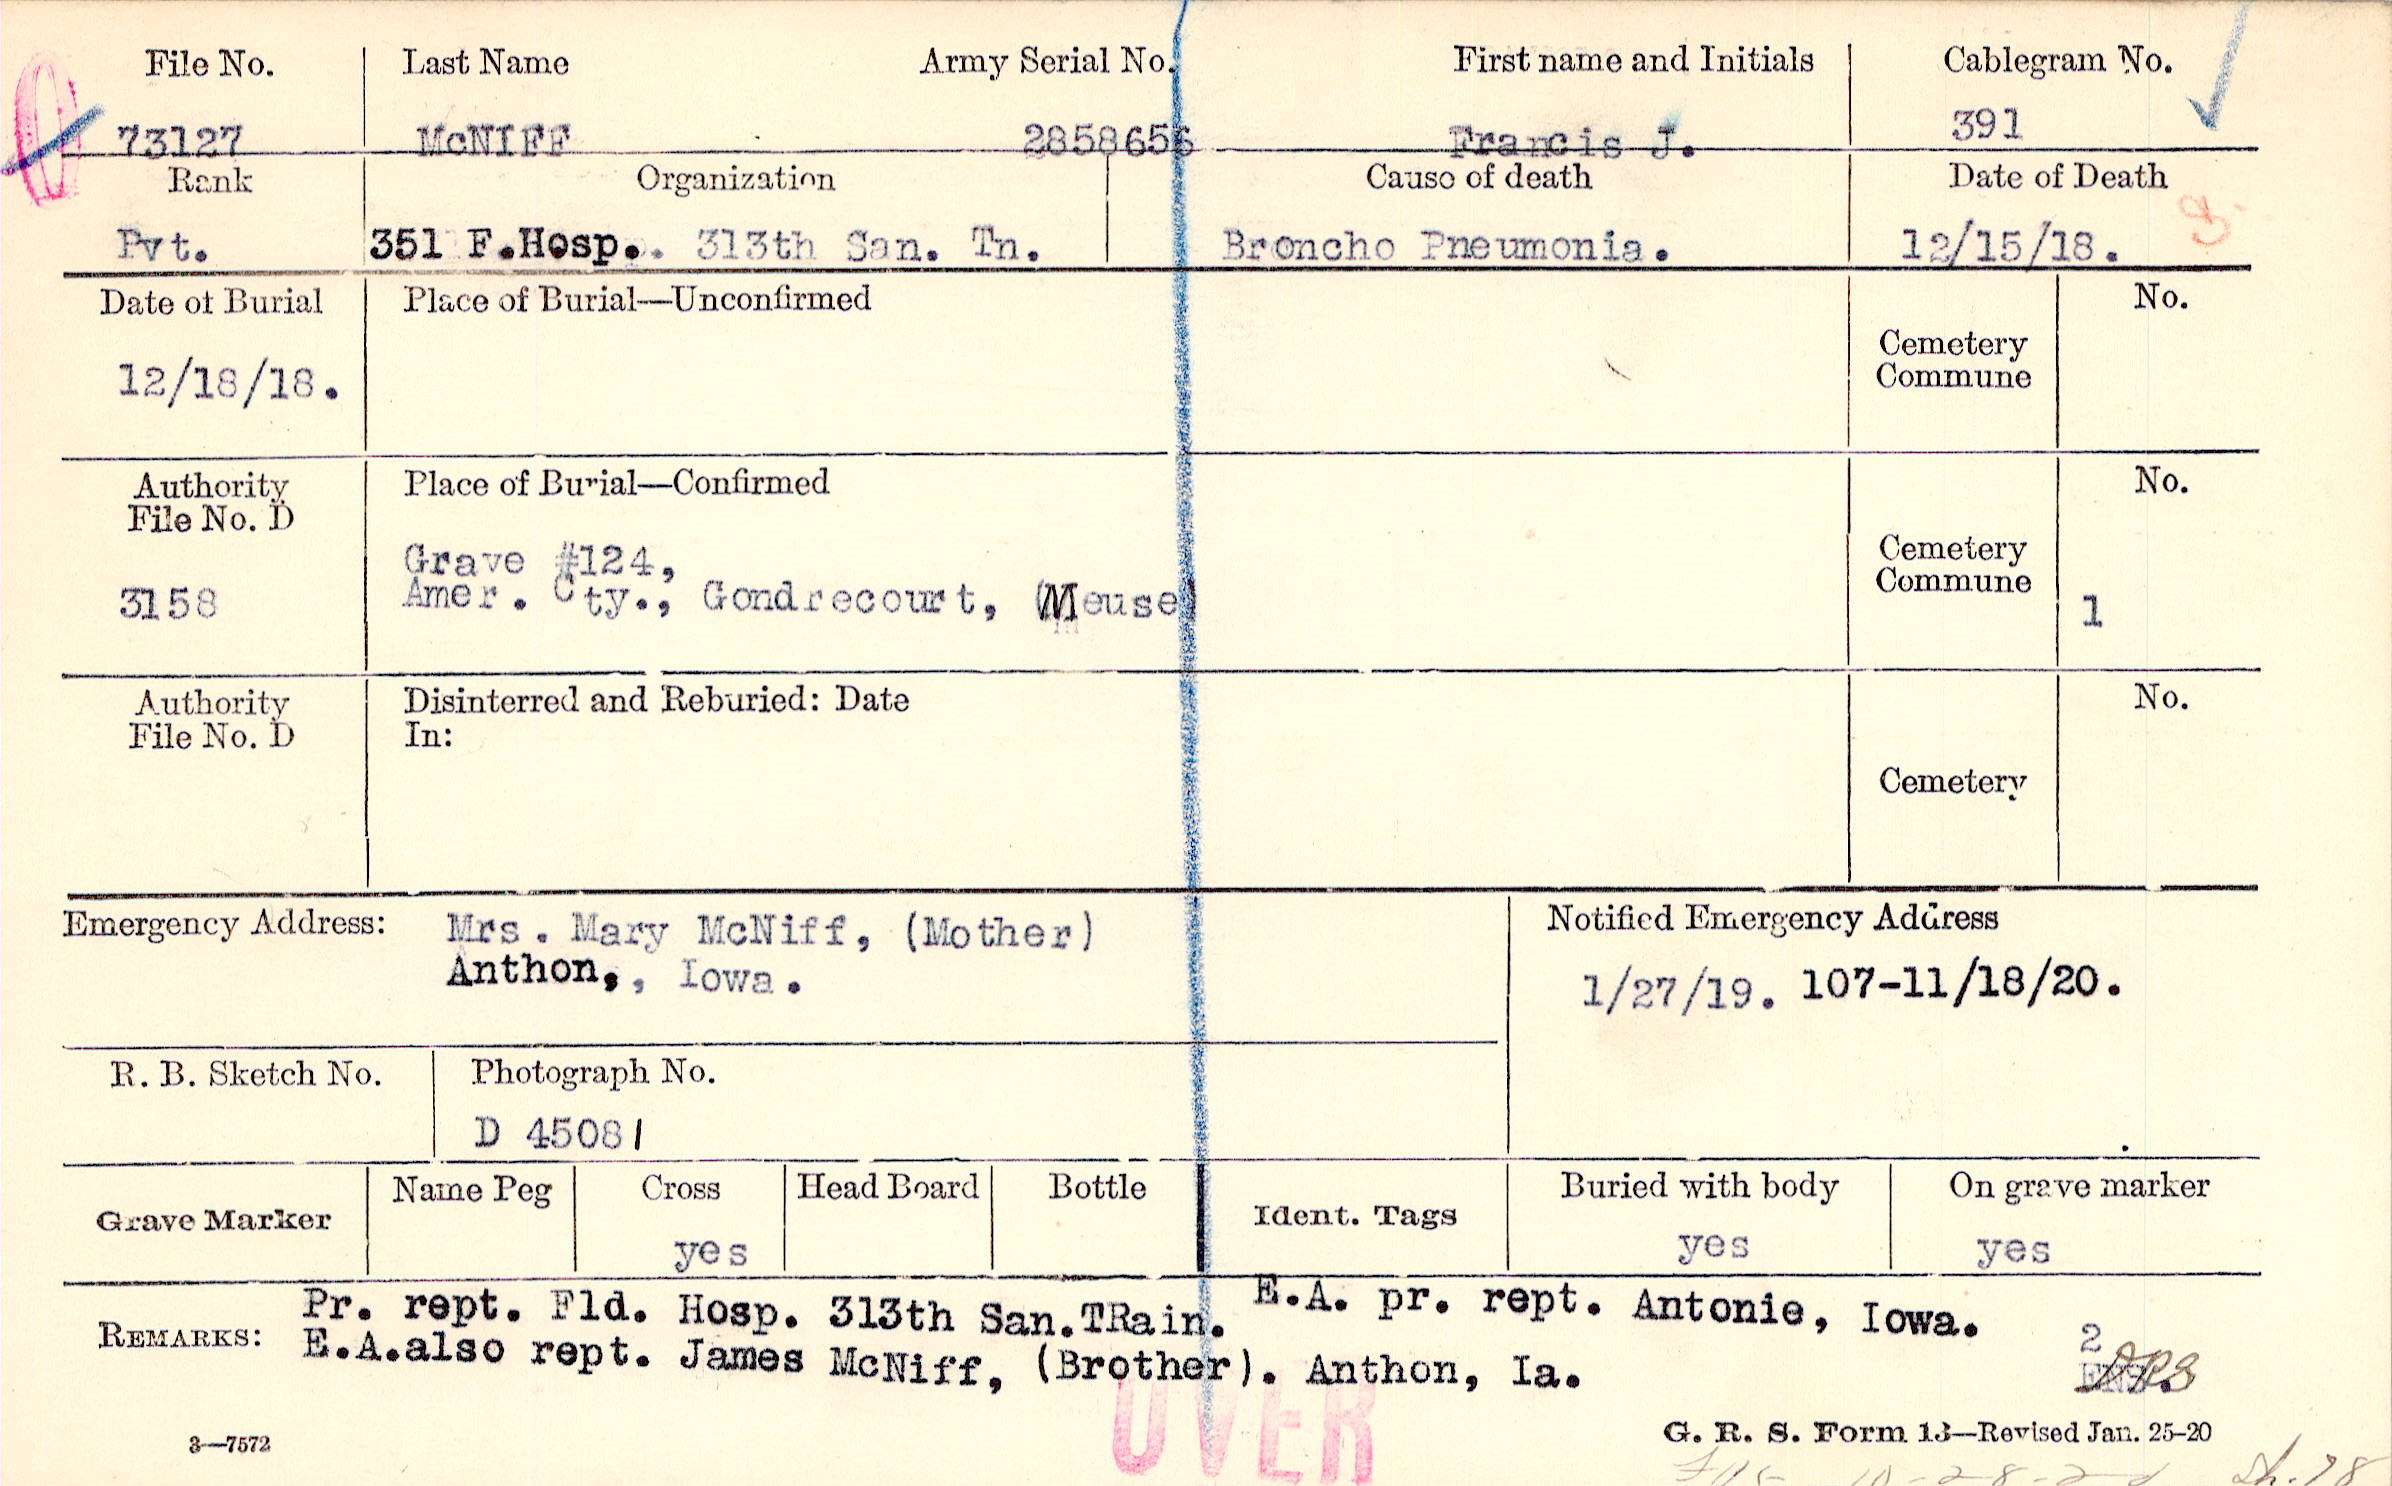 File No. Last Name Army Serial No. First name and Initials Cablegram No.
73127 McNIFF 2858656 Francis J. 391
Rank Organization Cause of death Date of Death
Pvt. 351 F.Hosp. 313th San. Tn. Broncho Pneumonia. 12/15/18. S
Date of Burial Place of Burial—Unconfirmed No.
Cemetery
Commune
12/18/18.
Authority Place of Burial—Confirmed No.
File No. D
Grave #124, Cemetery
3158 Amer. Cty., Gondrecourt, (Meuse) Commune 1
Authority Disinterred and Reburied: Date No.
File No. D In:
Cemetery
Emergency Address: Mrs. Mary McNiff, (Mother) Notified Emergency Address
Anthon,, Iowa. 1/27/19. 107-11/18/20.
R. B. Sketch No. Photograph No.
D 45081
Grave Marker Name Peg Cross Head Board Bottle Ident. Tags Buried with body On grave marker
yes yes yes
REMARKS: Pr. rept. Fld. Hosp. 313th San.TRain. E.A. pr. rept. Antonie, Iowa.
E.A.also rept. James McNiff, (Brother). Anthon, Ia.
2
OVER
3—7572 G. R. S. Form 13—Revised Jan. 25-20